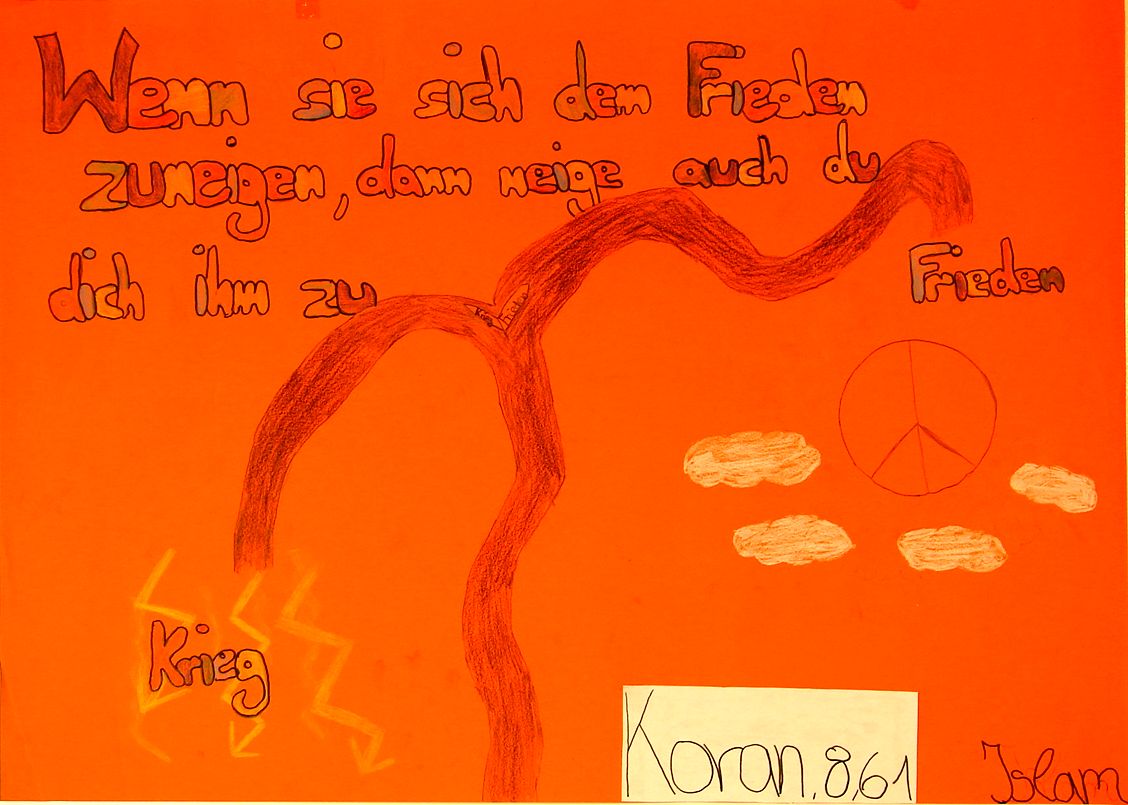 Wenn sie sich dem Frieden
zuneigen, dann neige auch du
dich ihm zu
Krieg Frieden
Frieden
Krieg
Koran, 8,61
Islam